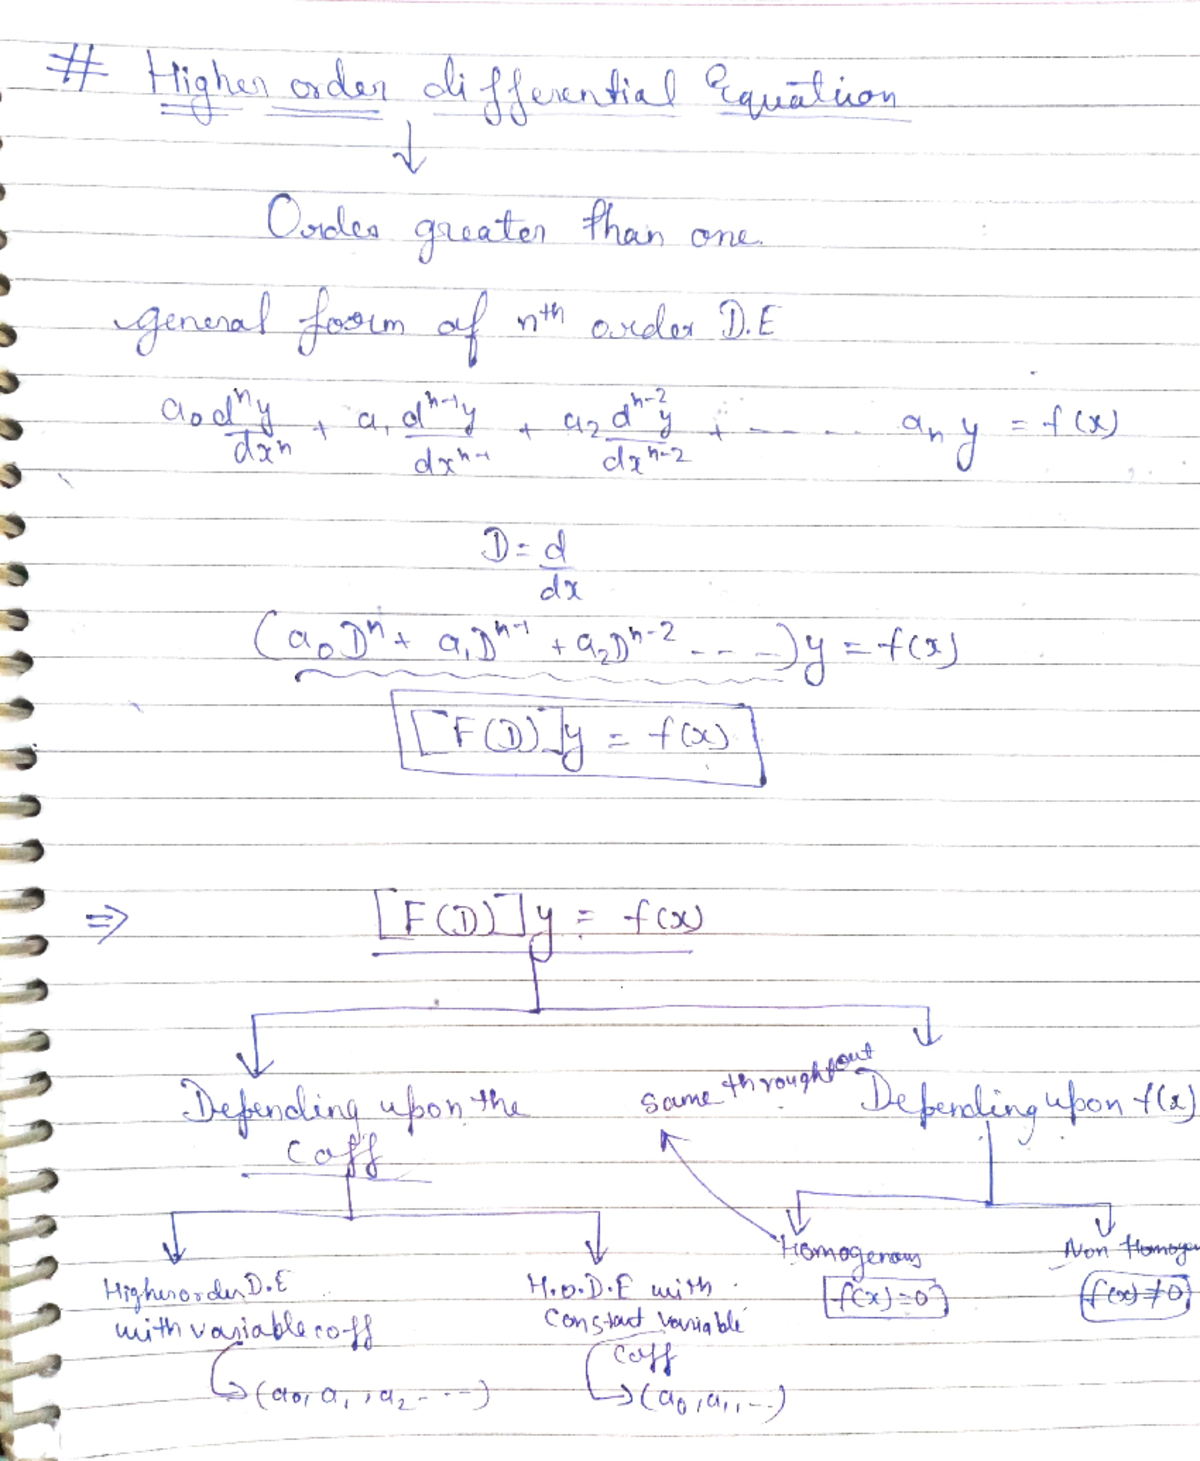 # Higher order differential Equation
↓
Order greater than one.
general form of nth order D.E
a₀ dⁿy/dxⁿ + a₁ dⁿ⁻¹y/dxⁿ⁻¹ + a₂ dⁿ⁻²y/dxⁿ⁻² + - - - - - aₙ y = f(x)
D = d/dx
(a₀Dⁿ + a₁Dⁿ⁻¹ + a₂Dⁿ⁻² - - - -)y = f(x)
[F(D)]y = f(x)
⇒ [F(D)]y = f(x)
Depending upon the
Coff
same throughtout
Depending upon f(x)
Homogenous
f(x)=0
Non Homogen
f(x)≠0
Higher order D.E
with variable coff
(a₀, a₁, a₂ - - - -)
H.O.D.E with
constant variable
Coff
(a₀, a₁, - -)